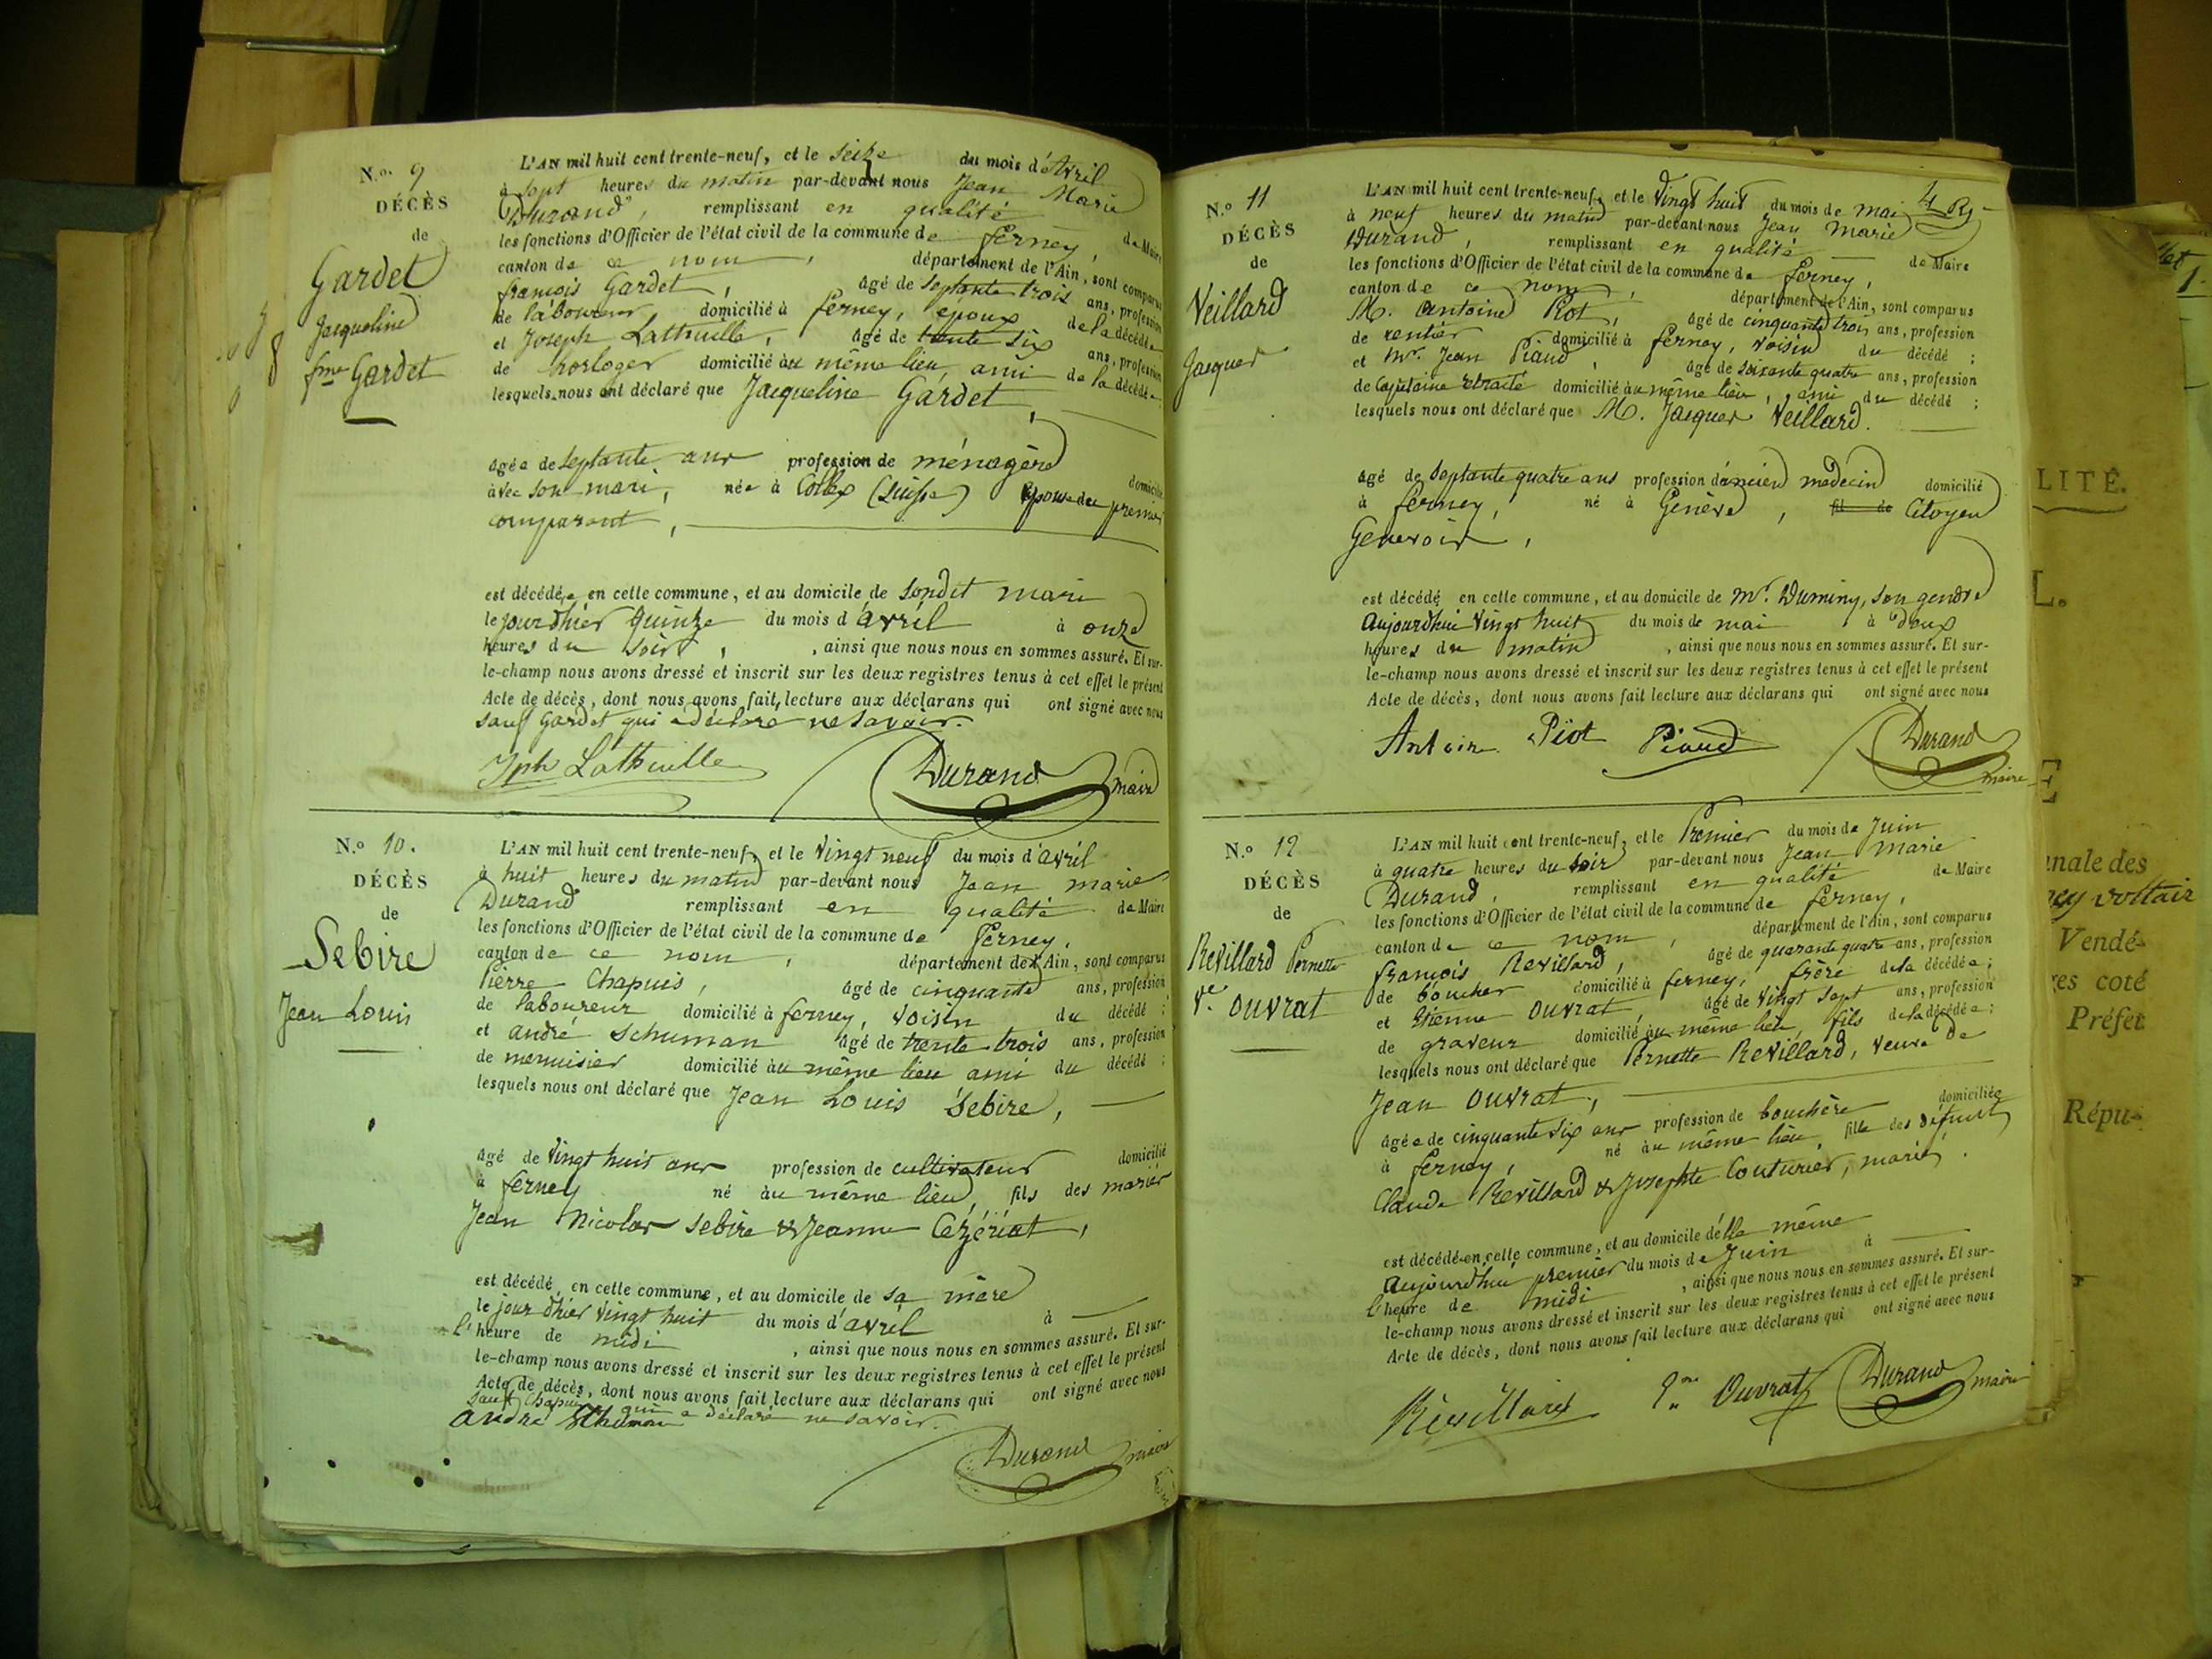 N.º 9
DÉCÈS
de
Gardet
Jacqueline
fme Gardet
L'AN mil huit cent trente-neuf, et le Seize du mois d'Avril
à sept heures du matin par-devant nous Jean Marie
Durand, remplissant en qualité de Maire
les fonctions d'Officier de l'état civil de la commune de ferney,
canton de ce nom, département de l'Ain, sont comparus
françois Gardet, âgé de septante trois ans, profession
de laboureur, domicilié à ferney, époux de la décédée
et Joseph Lathuille, âgé de trente six ans, profession
de horloger domicilié au même lieu, ami de la décédée
lesquels nous ont déclaré que Jacqueline Gardet,
âgée de septante ans profession de ménagère domicilié
avec son mari, née à Collex (Suisse) épouse du premier
comparant,
est décédée en cette commune, et au domicile de sondit mari
le jour d'hier quinze du mois d'avril à onze
heures du soir, , ainsi que nous nous en sommes assuré. Et sur-
le-champ nous avons dressé et inscrit sur les deux registres tenus à cet effet le présent
Acte de décès, dont nous avons fait lecture aux déclarans qui ont signé avec nous
sauf Gardet qui a déclaré ne savoir.
Jph Lathuille Durand maire
N.º 10.
DÉCÈS
de
Sebire
Jean Louis
L'AN mil huit cent trente-neuf, et le Vingt neuf du mois d'avril
à huit heures du matin par-devant nous Jean marie
Durand remplissant en qualité de Maire
les fonctions d'Officier de l'état civil de la commune de Ferney,
canton de ce nom, département de l'Ain, sont comparus
Pierre Chapuis, âgé de cinquante ans, profession
de laboureur domicilié à ferney, voisin du décédé ;
et andré Schuman âgé de trente trois ans, profession
de menuisier domicilié au même lieu ami du décédé ;
lesquels nous ont déclaré que Jean Louis Sebire,
âgé de Vingt huit ans profession de cultivateur domicilié
à ferney né au même lieu, fils des mariés
Jean Nicolas Sebire & Jeanne Cézériat,
est décédé en cette commune, et au domicile de sa mère
le jour d'hier Vingt huit du mois d'avril à
l'heure de midi , ainsi que nous nous en sommes assuré. Et sur-
le-champ nous avons dressé et inscrit sur les deux registres tenus à cet effet le présent
Acte de décès, dont nous avons fait lecture aux déclarans qui ont signé avec nous
sauf Chapuis qui a déclaré ne savoir.
andré Schuman
Durand maire
N.º 11
DÉCÈS
de
Veillard
Jacques
L'AN mil huit cent trente-neuf, et le Vingt huit du mois de mai
à neuf heures du matin par-devant nous Jean Marie
Durand, remplissant en qualité de Maire
les fonctions d'Officier de l'état civil de la commune de ferney,
canton de ce nom, département de l'Ain, sont comparus
M. Antoine Piot, âgé de cinquante trois ans, profession
de rentier domicilié à ferney, voisin du décédé ;
et Mr. Jean Piaud âgé de soixante quatre ans, profession
de Capitaine retraité domicilié au même lieu, ami du décédé ;
lesquels nous ont déclaré que M. Jacques Veillard.
âgé de septante quatre ans profession d'ancien medecin domicilié
à ferney, né à Genève, fil de Citoyen
Genevois,
est décédé en cette commune, et au domicile de Mr. Duminy, son gendre
aujourdhui Vingt huit du mois de mai à deux
heures du matin , ainsi que nous nous en sommes assuré. Et sur-
le-champ nous avons dressé et inscrit sur les deux registres tenus à cet effet le présent
Acte de décès, dont nous avons fait lecture aux déclarans qui ont signé avec nous
Antoine Piot Piaud Durand
maire
N.º 12
DÉCÈS
de
Revillard Pernette
Ve. Ouvrat
L'AN mil huit cent trente-neuf, et le Premier du mois de Juin
à quatre heures du soir par-devant nous Jean Marie
Durand, remplissant en qualité de Maire
les fonctions d'Officier de l'état civil de la commune de ferney,
canton de ce nom, département de l'Ain, sont comparus
françois Revillard, âgé de quarante quatre ans, profession
de boucher domicilié à ferney, frère de la décédée ;
et Etienne Ouvrat, âgé de Vingt sept ans, profession
de graveur domicilié au même lieu, fils de la décédée ;
lesquels nous ont déclaré que Pernette Revillard, veuve de
Jean Ouvrat,
âgée de cinquante six ans profession de bouchère domiciliée
à ferney, né au même lieu, fille des défunts
Claude Revillard & Josephte Couturier, mariés.
est décédée en cette commune, et au domicile d'elle même
aujourdhui premier du mois de Juin à
l'heure de midi , ainsi que nous nous en sommes assuré. Et sur-
le-champ nous avons dressé et inscrit sur les deux registres tenus à cet effet le présent
Acte de décès, dont nous avons fait lecture aux déclarans qui ont signé avec nous
Révillard Ouvrat Durand maire
LITÉ.
L.
E
nale des
ney voltair
Vendé-
res coté
Préfet
Répu-